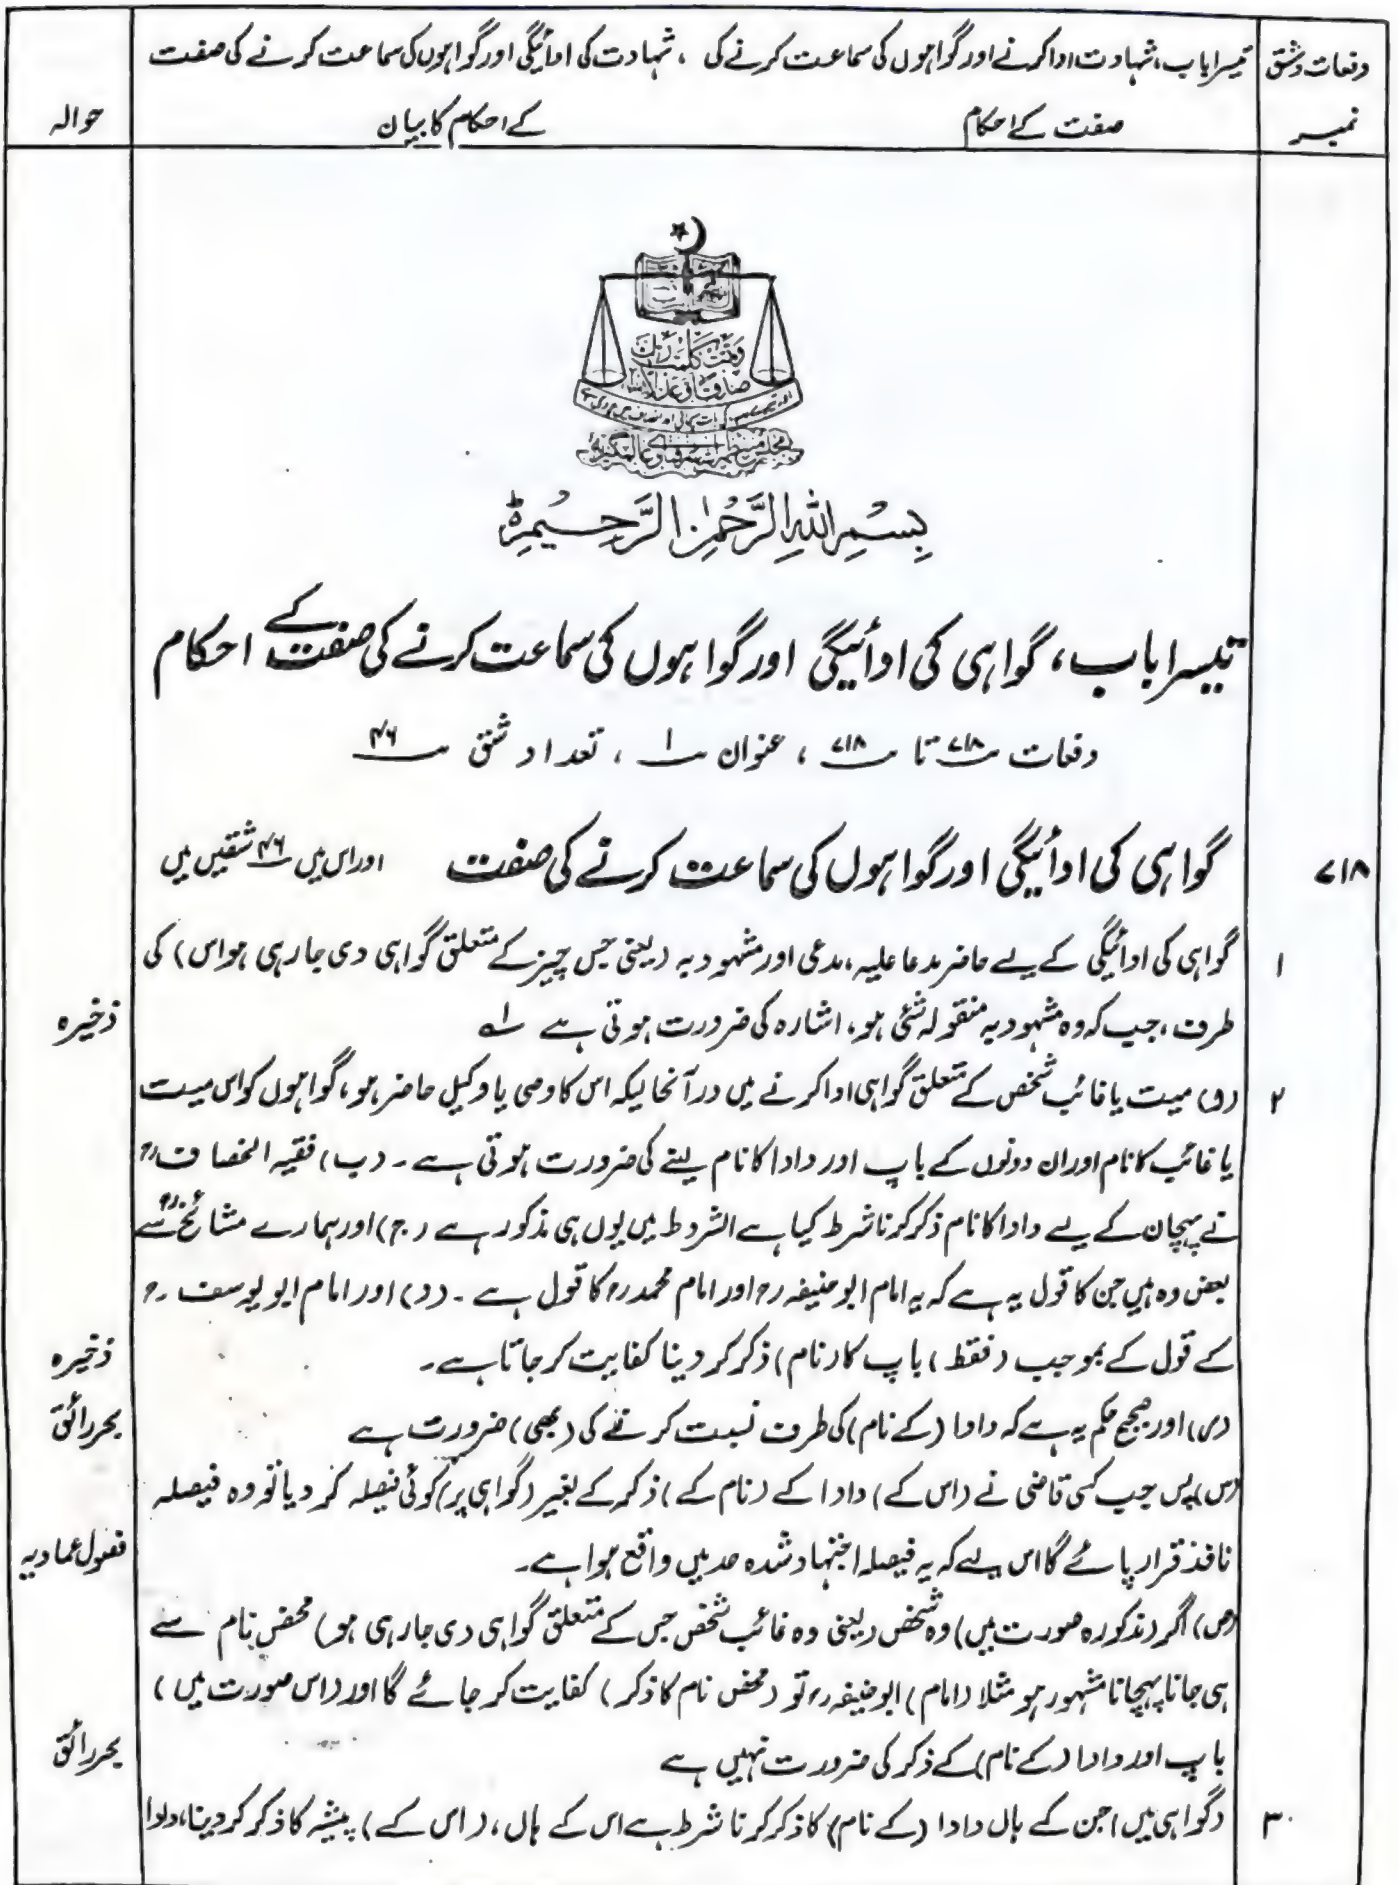 دفعات و شق تیسرا باب، شہادت ادا کرنے اور گواہوں کی سماعت کرنے کی ، شہادت کی ادائیگی اور گواہوں کی سماعت کرنے کی صفت
نمبر صفت کے احکام کے احکام کا بیان حوالہ
وتمت کلمت ربک
صدقا وعدلا
بسم اللہ الرحمٰن الرحیم
تیسرا باب، گواہی کی ادائیگی اور گواہوں کی سماعت کرنے کی صفت کے احکام
دفعات ۷۱۸ تا ۷۱۸ ، عنوان ۱ ، تعداد شق ۴۶
۷۱۸ گواہی کی ادائیگی اور گواہوں کی سماعت کرنے کی صفت اور اس میں ۴۶ شقیں ہیں
۱ گواہی کی ادائیگی کے لیے حاضر مدعا علیہ، مدعی اور مشہود بہ (یعنی جس چیز کے متعلق گواہی دی جا رہی ہو اس) کی
طرف، جب کہ وہ مشہود بہ منقولہ شئی ہو، اشارہ کی ضرورت ہوتی ہے ۱ ذخیرہ
۲ (و) میت یا غائب شخص کے متعلق گواہی ادا کرنے میں در آنحالیکہ اس کا وصی یا وکیل حاضر ہو، گواہوں کو اس میت
یا غائب کا نام اور ان دونوں کے باپ اور دادا کا نام لینے کی ضرورت ہوتی ہے۔ (ب) فقیہ الخصاف رح
نے پہچان کے لیے دادا کا نام ذکر کرنا شرط کیا ہے الشروط میں یوں ہی مذکور ہے (ج) اور ہمارے مشائخ رح سے
بعض وہ ہیں جن کا قول یہ ہے کہ یہ امام ابو حنیفہ رح اور امام محمد رح کا قول ہے۔ (د) اور امام ابو یوسف رح
کے قول کے بموجب (فقط) باپ کا (نام) ذکر کر دینا کفایت کر جاتا ہے۔ ذخیرہ
(ی) اور صحیح حکم یہ ہے کہ دادا (کے نام) کی طرف نسبت کرنے کی (بھی) ضرورت ہے بحر رائق
(س) پس جب کسی قاضی نے (اس کے) دادا کے (نام کے) ذکر کے بغیر (گواہی پر) کوئی فیصلہ کر دیا تو وہ فیصلہ
نافذ قرار پائے گا اس لیے کہ یہ فیصلہ اجتہاد شدہ حد میں واقع ہوا ہے۔ فصول عمادیہ
(ص) اگر (مذکورہ صورت میں) وہ شخص (یعنی وہ غائب شخص جس کے متعلق گواہی دی جا رہی ہو) محض نام سے
ہی جانا پہچانا مشہور ہو مثلا (امام) ابو حنیفہ رح تو (محض نام کا ذکر) کفایت کر جائے گا اور (اس صورت میں)
باپ اور دادا (کے نام) کے ذکر کی ضرورت نہیں ہے بحر رائق
۳ (گواہی میں) جن کے ہاں دادا (کے نام) کا ذکر کرنا شرط ہے اس کے ہاں، (اس کے) پیشہ کا ذکر کر دینا، دادا